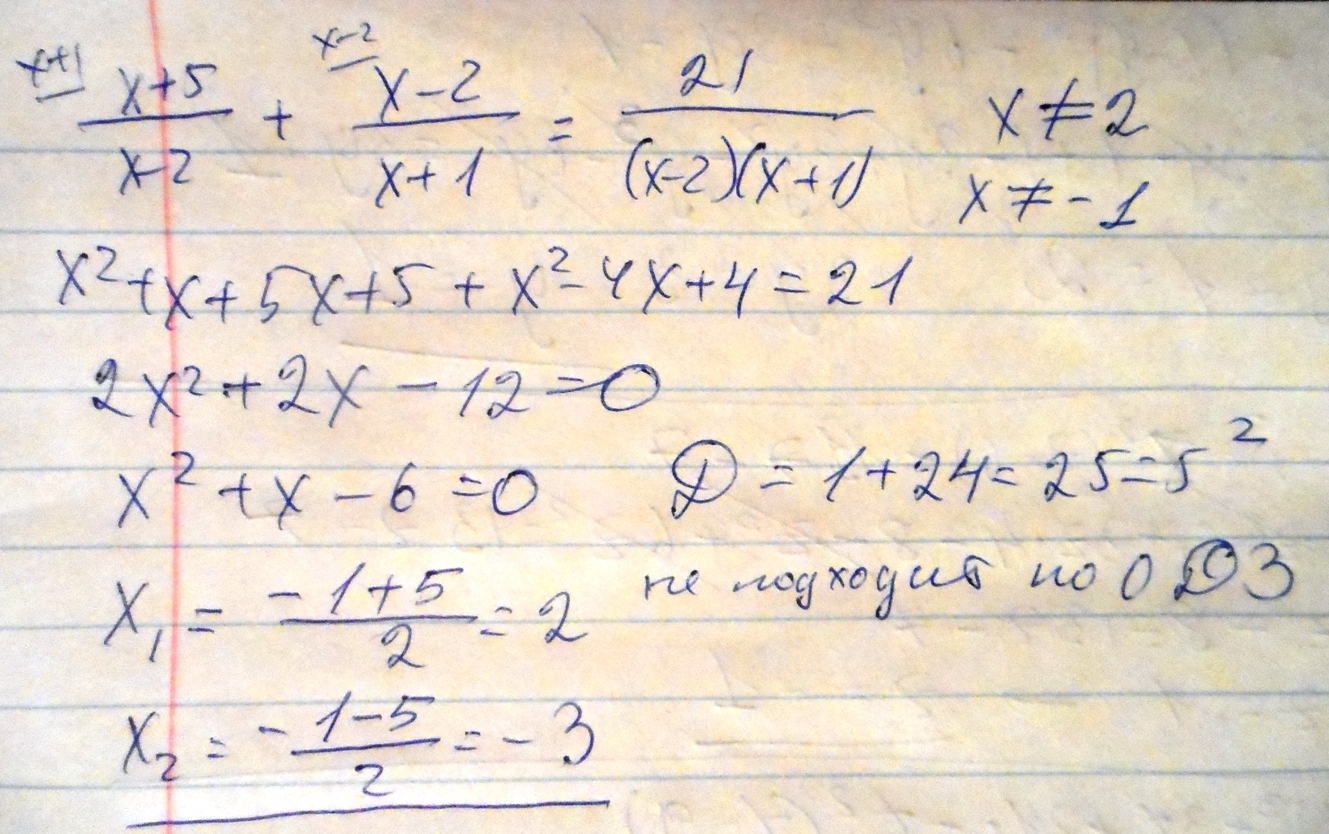 x+1 x-2
x+5/x-2 + x-2/x+1 = 21/(x-2)(x+1) x≠2
x≠-1
x²+x+5x+5+x²-4x+4=21
2x²+2x-12=0
x²+x-6=0 D=1+24=25=5²
x₁ = -1+5/2 = 2 не подходит по ОДЗ
x₂ = -1-5/2 = -3